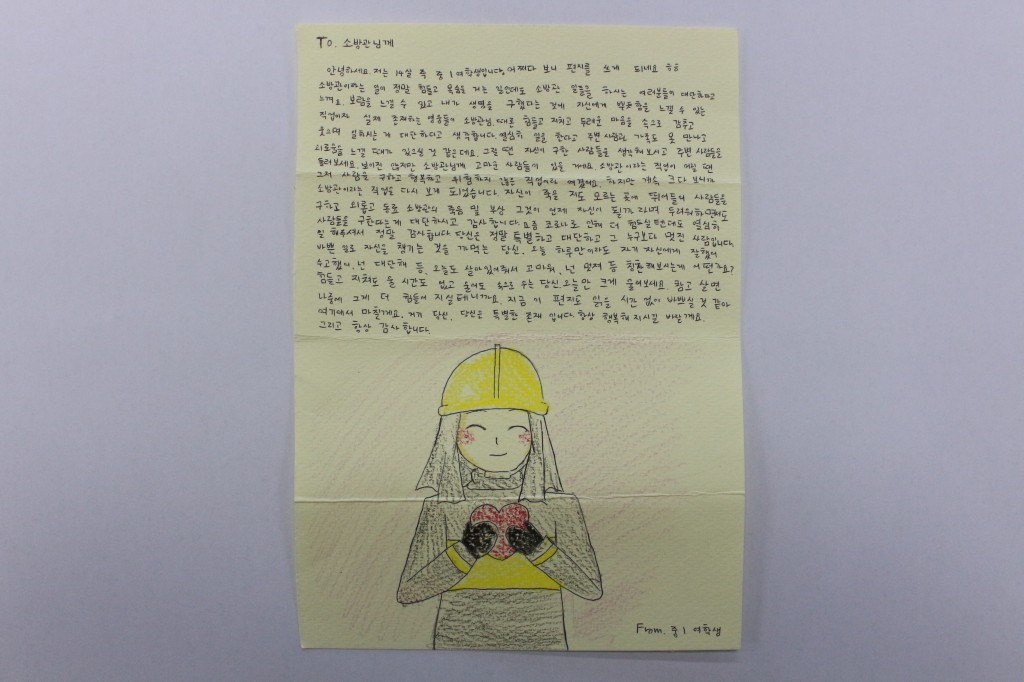 To. 소방관님께
안녕하세요. 저는 14살 즉 중1 여학생입니다. 어쩌다 보니 편지를 쓰게 되네요 ㅎㅎ
소방관이라는 일이 정말 힘들고 목숨을 거는 일인데도 소방관 일들을 하시는 여러분들이 대단하다고
느껴요. 보람을 느낄 수 있고 내가 생명을 구했다는 것에 자신에게 뿌듯함을 느낄 수 있는
직업이자 실제 존재하는 영웅들이 소방관님. 때론 힘들고 지치고 두려운 마음을 속으로 감추고
웃으며 일하시는 게 대단하다고 생각합니다. 열심히 일을 한다고 주변 사람과 가족도 못 만나고
외로움을 느낄 때가 있으실 것 같은데요. 그럴 땐 자신이 구한 사람들을 생각해 보시고 주변 사람들을
둘러보세요. 보이진 않지만 소방관님께 고마운 사람들이 있을 거예요. 소방관이라는 직업이 어릴 땐
그저 사람을 구하고 행복하고 위험하지 않은 직업이라 여겼어요. 하지만 계속 크다 보니까
소방관이라는 직업을 다시 보게 되었습니다. 자신이 죽을 지도 모르는 곳에 뛰어들어 사람들을
구하고 외롭고 동료 소방관의 죽음 및 부상 그것이 언제 자신이 될까라며 두려워하면서도
사람들을 구한다는게 대단하시고 감사합니다. 요즘 코로나로 인해 더 힘드실텐데도 열심히
일 해주셔서 정말 감사합니다. 당신은 정말 특별하고 대단하고 그 누구보다 멋진 사람입니다.
바쁜 일로 자신을 챙기는 것을 까먹는 당신, 오늘 하루만이라도 자기 자신에게 잘했어
수고했어, 넌 대단해 등, 오늘도 살아있어줘서 고마워, 넌 멋져 등 칭찬해보시는게 어떤가요?
힘들고 지쳐도 울 시간도 없고 울어도 속으로 우는 당신. 오늘만 크게 울어보세요. 참고 살면
나중에 그게 더 힘들어 지실테니까요. 지금 이 편지도 읽을 시간 없이 바쁘실 것 같아
여기에서 마칠게요. 거기 당신, 당신은 특별한 존재 입니다. 항상 행복해 지시길 바랄게요.
그리고 항상 감사 합니다.
From. 중1 여학생